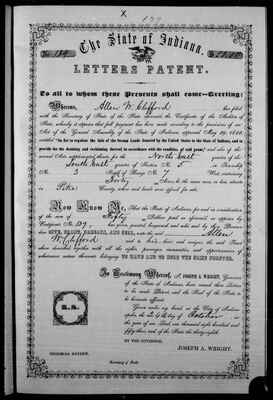 X
139
The State of Indiana.
No. 139
LETTERS PATENT.
To all to whom these Presents shall come—Greeting:
Whereas, Allen W. Clifford has filed
with the Secretary of State of the State aforesaid the Certificate of the Auditor of
State, whereby it appears that full payment has been made according to the provisions of an
Act of the General Assembly of the State of Indiana, approved May
entitled "An Act to regulate the Sale of the Swamp Lands donated by the United States to the State of Indiana, and to
provide for the draining and reclaiming thereof in accordance with the condition of said grant," and also of the
several Acts supplemental thereto, for the North East quarter of the
South East quarter of Section No. 5 in Township
No. 3 South of Range No. 7 West containing
Forty Acres, to the same more or less, situate
in Pike County, when said lands were offered for sale.
Now Know Ye, That the State of Indiana, for and in consideration
of the sum of Fifty Dollars paid as aforesaid, as appears by
Certificate No. 139, has given, granted, bargained and sold, and by these Presents
doth GIVE, GRANT, BARGAIN, AND SELL, unto the said Allen
W. Clifford and to his heirs and assigns, the said Tract
above described, together with all the rights, privileges, immunities, and appurtenances of
whatsoever nature thereunto belonging, TO HAVE AND TO HOLD THE SAME FOREVER.
In Testimony Whereof, I, JOSEPH A. WRIGHT, Governor
of the State of Indiana, have caused these Letters
to be made Patent, and the Seal of the State to
be hereunto affixed.
Given under my hand, at the City of Indiana-
polis, the 24th day of October in
the year of our Lord, one thousand eight hundred and
fifty and of the State the thirty-eighth.
BY THE GOVERNOR,
JOSEPH A. WRIGHT.
L.S.
Secretary of State